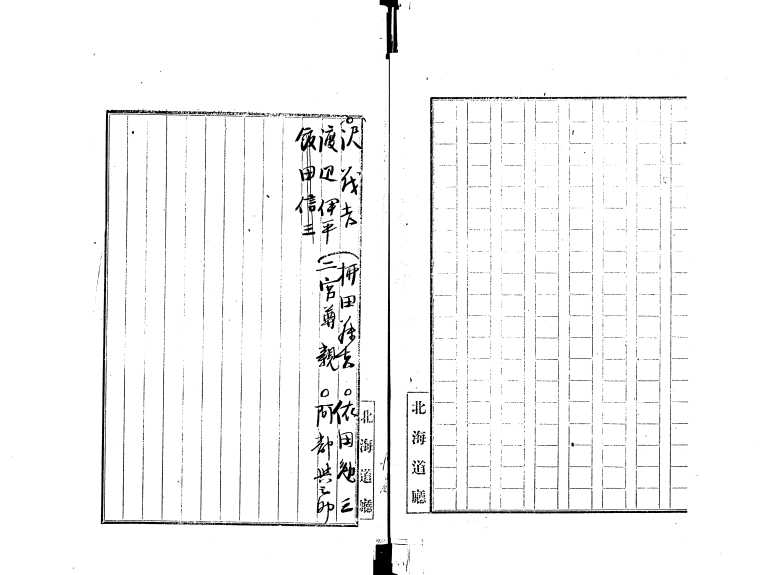 北海道廳
○沢茂吉 (柵田藤吉 ○依田勉三
渡辺伊平 (二宮尊親 ○阿部與之助
飯田信三
北海道廳